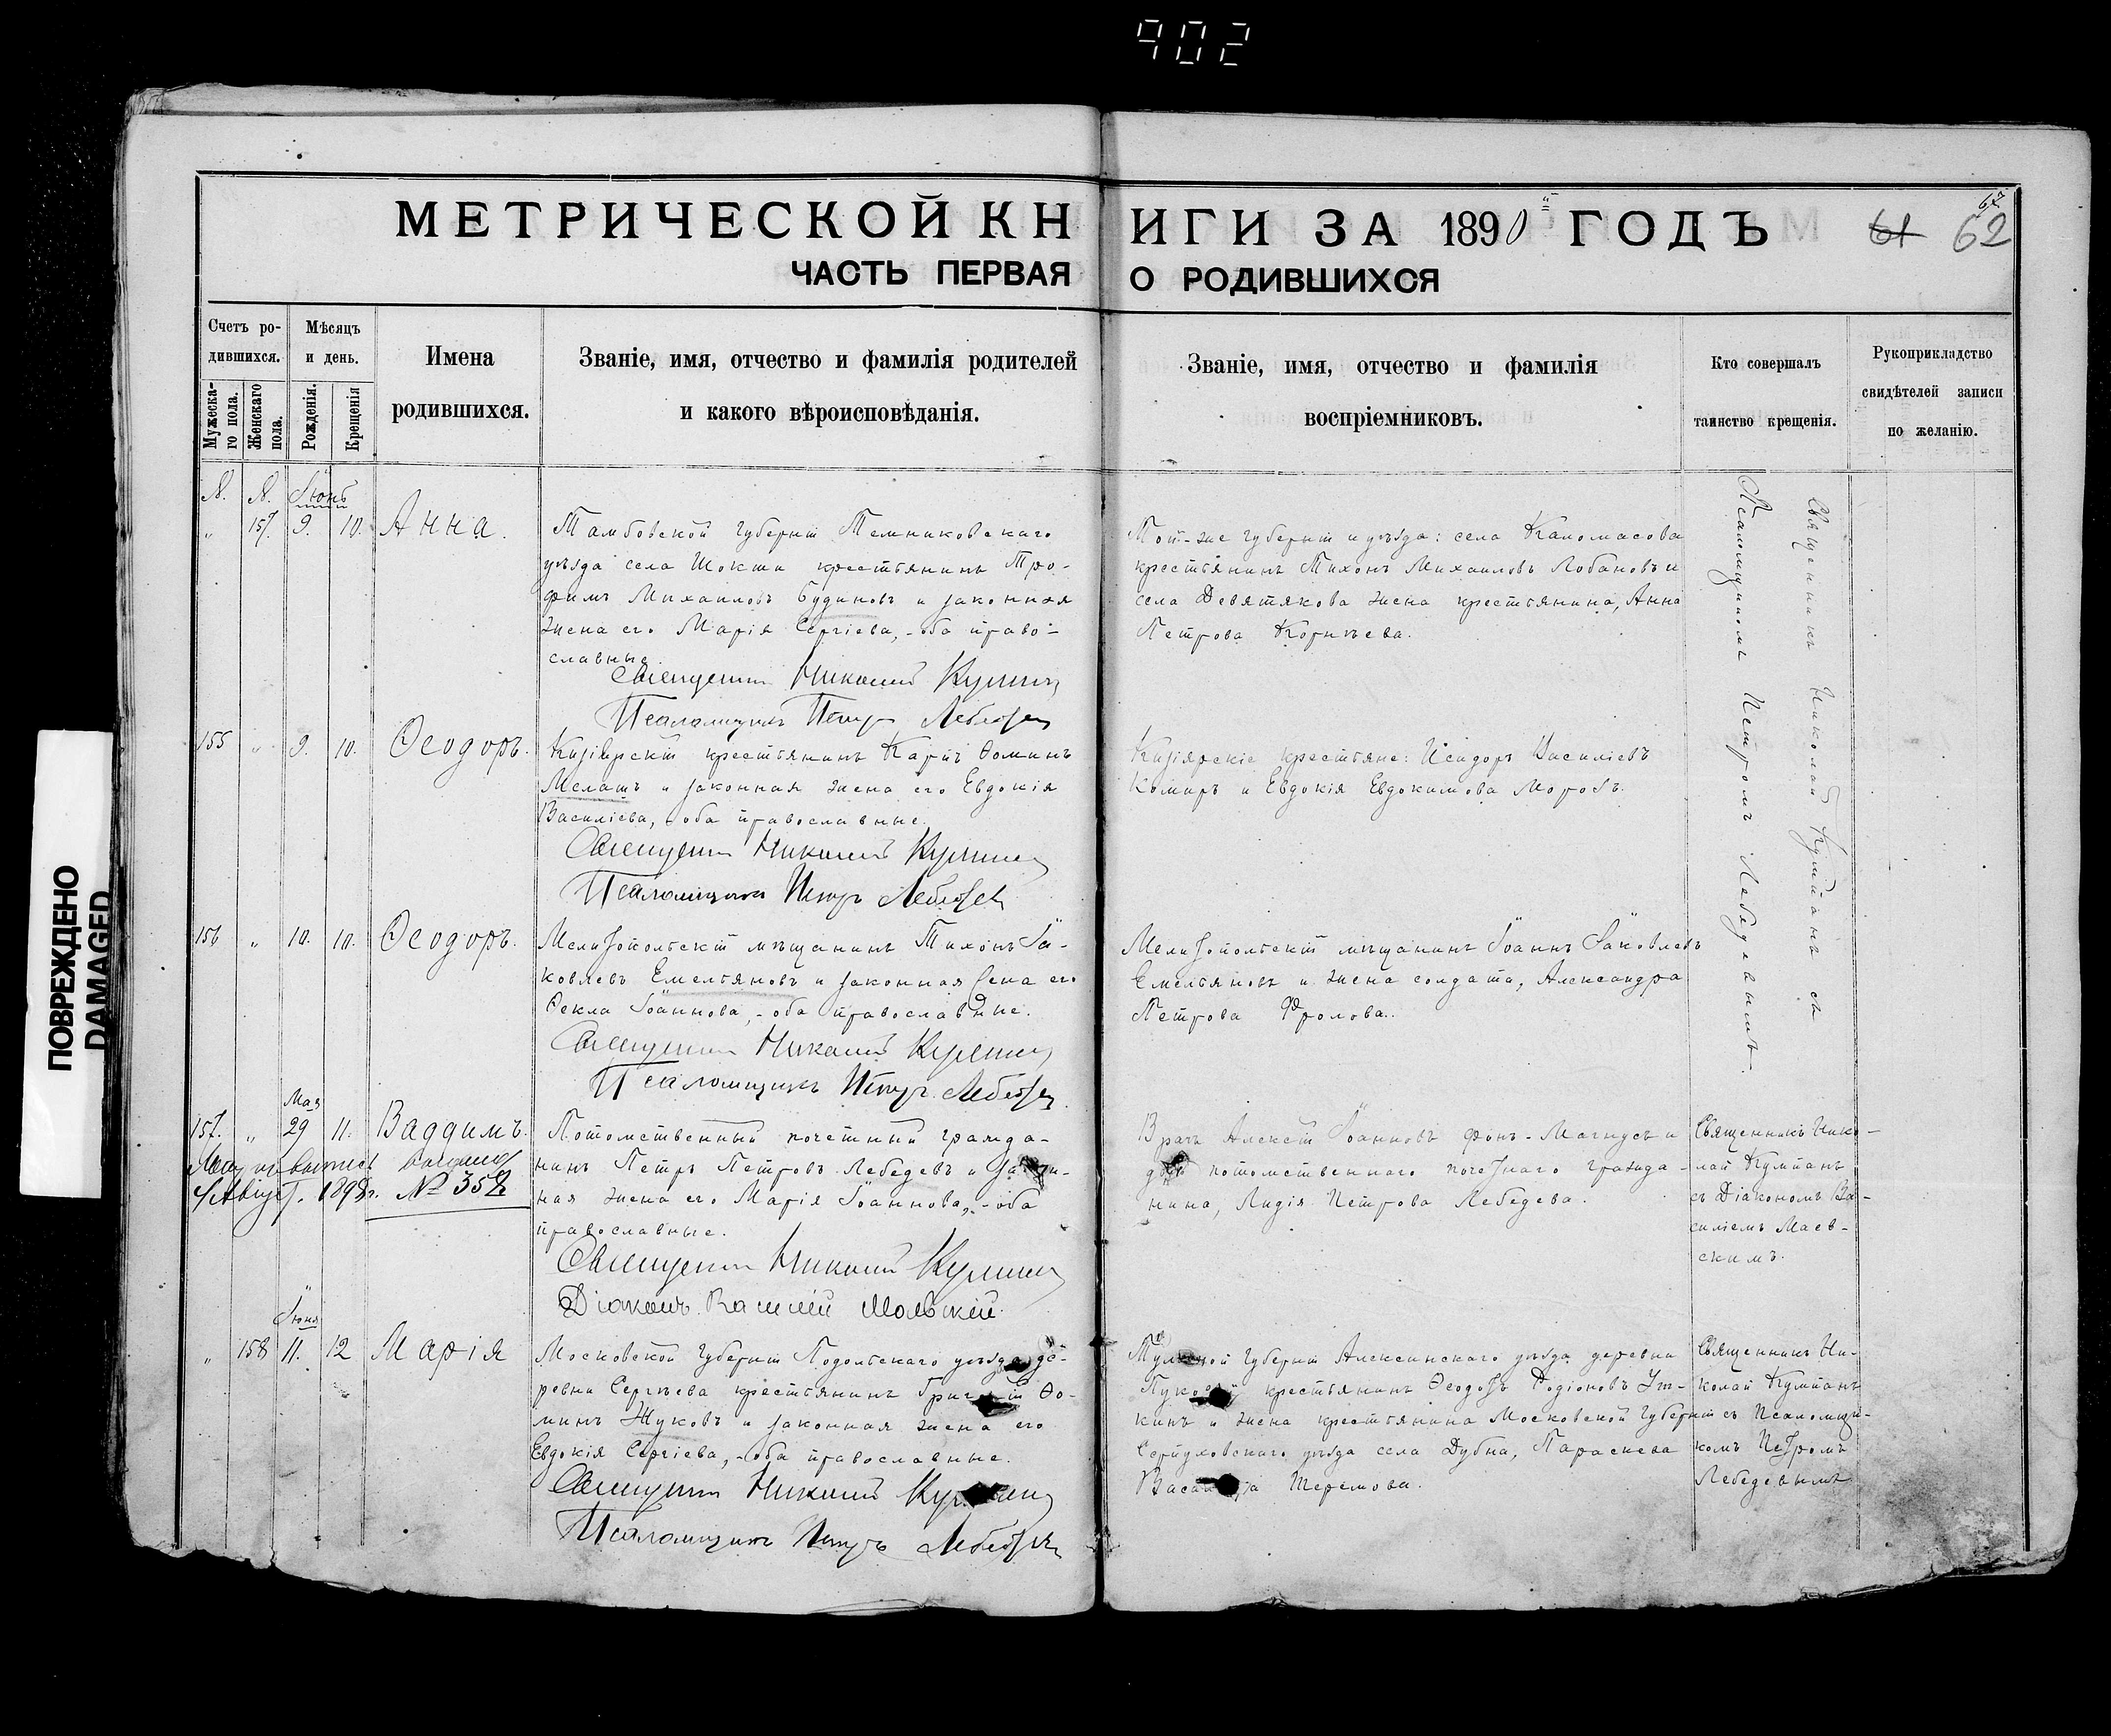 902
МЕТРИЧЕСКОЙ КНИГИ ЗА 1890й ГОДЪ
67
61 62
ЧАСТЬ ПЕРВАЯ О РОДИВШИХСЯ
Счетъ родившихся.
Мужеска-го пола.
Женскаго пола.
Мѣсяцъ и день.
Рожденія.
Крещенія
Имена родившихся.
Званіе, имя, отчество и фамилія родителей
и какого вѣроисповѣданія.
Званіе, имя, отчество и фамилія
воспріемниковъ.
Кто совершалъ
таинство крещенія.
Рукоприкладство
свидѣтелей записи
по желанію.
№. №. Іюнь
" 157. 9. 10. Анна.
Тамбовской губерніи Темниковскаго
уѣзда села Шокши крестьянинъ Тро-
фимъ Михаиловъ Будиновъ и законная
жена его Марія Сергіева, - оба право-
славные.
Священникъ Николай
Псаломщикъ Петръ Лебедевъ
Той-же губерніи и уѣзда: села Каломасова
крестьянинъ Тихонъ Михаиловъ Лобановъ и
села Девятякова жена крестьянина, Анна
Петрова Корнѣева.
Священникъ Николай Кулпанъ съ
Псаломщикомъ Петромъ Лебедевымъ.
155 " 9. 10. Ѳеодоръ.
Кизіярскій крестьянинъ Карпъ Ѳоминъ
Меламъ и законная жена его Евдокія
Василіева, - оба православные.
Священникъ Николай
Псаломщикъ Петръ Лебедевъ
Кизіярскіе крестьяне: Исидоръ Василіевъ
Комаръ и Евдокія Евдокимова Морозъ.
156 " 10. 10. Ѳеодоръ.
Мелитопольскій мѣщанинъ Тихонъ Іа-
ковлевъ Емельяновъ и законная жена его
Ѳекла Іоаннова, - оба православные.
Священникъ Николай
Псаломщикъ Петръ Лебедевъ
Мелитопольскій мѣщанинъ Іоаннъ Іаковлевъ
Емельяновъ и жена солдата, Александра
Петрова Фролова.
Мая
157. " 29 11. Вадимъ.
1898г. № 352
Потомственный почетный гражда-
нинъ Петръ Петровъ Лебедевъ и закон-
ная жена его Марія Іоаннова, - оба
православные.
Священникъ Николай
Діаконъ Василій Маевскій
Врачъ Алексѣй Іоанновъ фонъ-Магнусъ и
дочь потомственнаго почетнаго гражда-
нина, Лидія Петрова Лебедева.
Священникъ Нико-
лай Кулпанъ
съ Діакономъ Ва-
силіемъ Маев-
скимъ.
Іюня
" 158 11. 12 Марія
Московской губерніи Подольскаго уѣзда де-
ревни Сергѣева крестьянинъ Григорій Ѳо-
минъ Жуковъ и законная жена его
Евдокія Сергіева, - оба православные.
Священникъ Николай
Псаломщикъ Петръ Лебедевъ
Тульской губерніи Алексинскаго уѣзда деревни
крестьянинъ Ѳеодоръ Родіоновъ Ут-
кинъ и жена крестьянина Московской губерніи
Серпуховскаго уѣзда села Дубна, Параскева
Теремова.
Священникъ Ни-
колай Кулпанъ
съ Псаломщи-
комъ Петромъ
Лебедевымъ
ПОВРЕЖДЕНО
DAMAGED